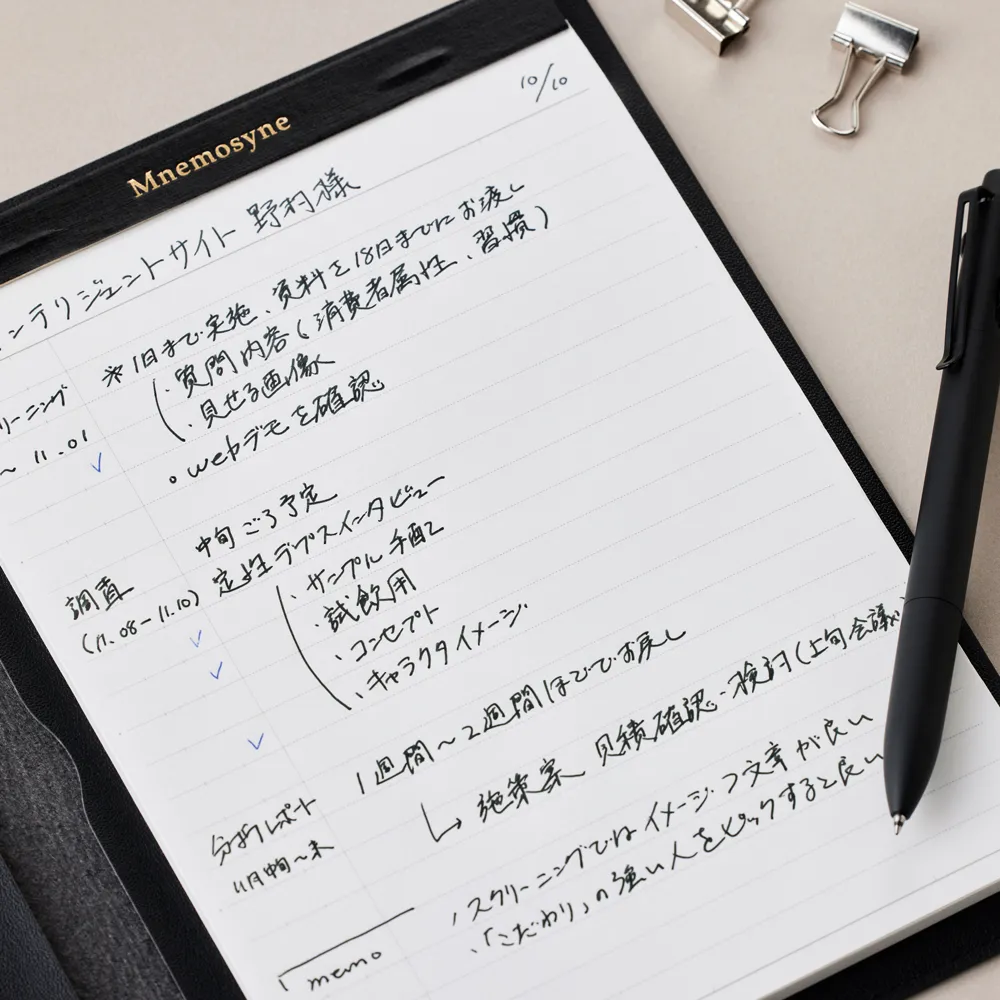 Mnemosyne
10/10
ンテリジェントサイト 野村様
リーニング
~ 11.01
※1日まで実施、資料を18日までにお渡し
・質問内容(消費者属性、習慣)
・見せる画像
・webデモを確認
調査
(11.08-11.10)
中旬ごろ予定
定性デプスインタビュー
・サンプル手配
・試飲用
・コンセプト
・キャラクタイメージ
分析レポート
11月中旬~末
1週間~2週間ほどでお戻し
↳ 施策案、見積確認・検討(上旬会議
memo
・スクリーニングではイメージ・文章が良い
・「こだわり」の強い人をピックすると良い